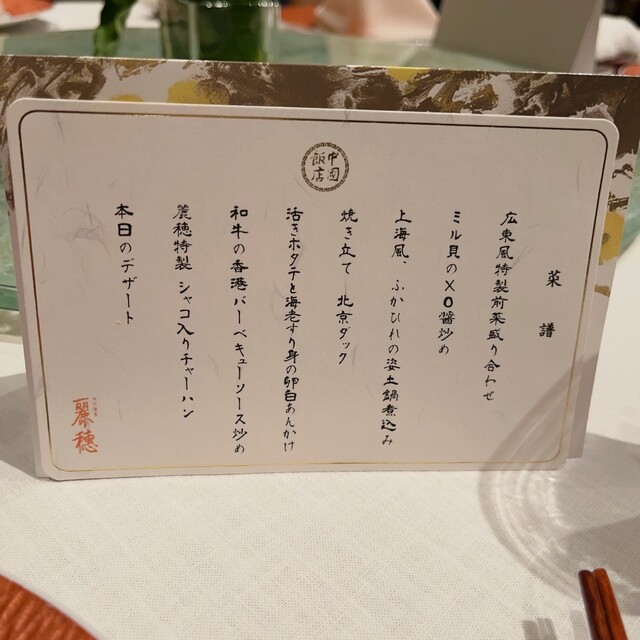 中国飯店
菜譜
広東風特製前菜盛り合わせ
ミル貝のXO醤炒め
上海風、ふかひれの姿土鍋煮込み
焼き立て 北京ダック
活きホタテと海老すり身の卵白あんかけ
和牛の香港バーベキューソース炒め
麗穂特製 シャコ入りチャーハン
本日のデザート
麗穂